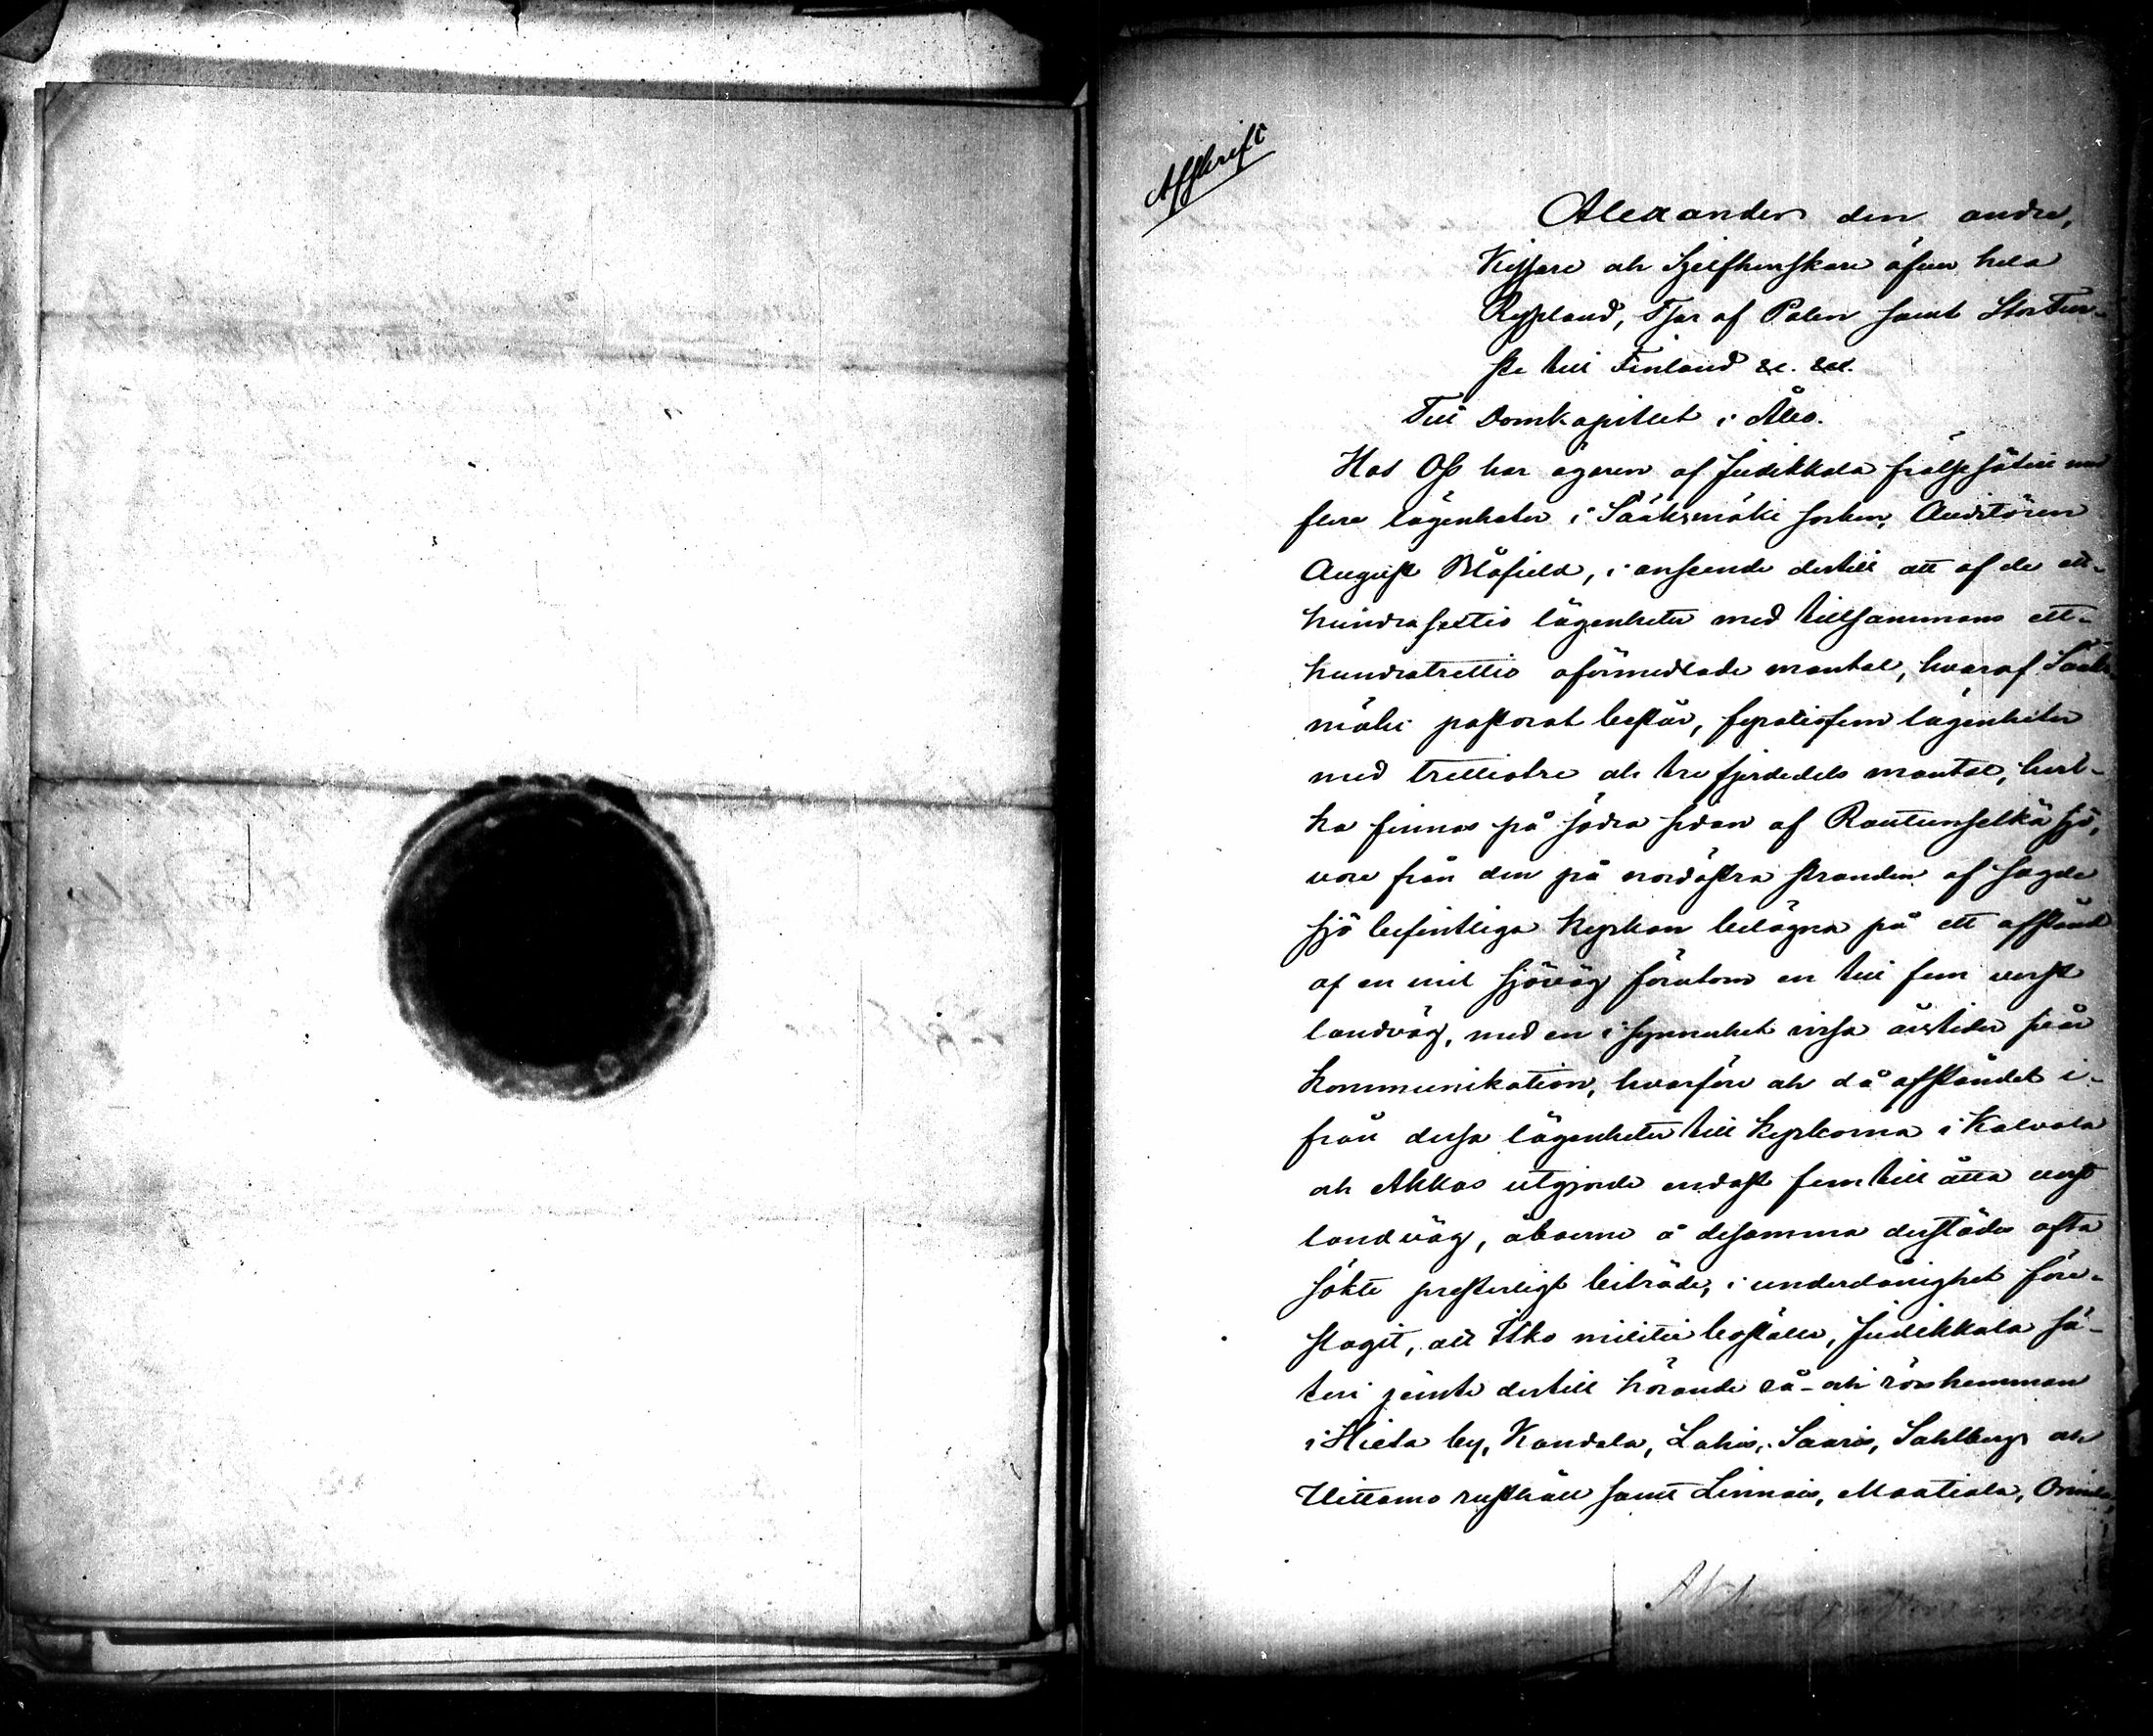 Afskrift
Alexander den andre,
Kejsare och Sjelfherskare öfver hela
Ryssland, Tsar af Polen samt Storfur-
ste till Finland &c. &c.
Till Domkapitlet i Åbo.
Hos Oss har ägaren af Judikkala frälse säteri med
flera lägenheter i Sääksmäki socken, Auditören
August Blåfield, i anseende dertill att af de ett-
hundrasextio lägenheter med tillsammans ett-
hundratrettio oförmedlade mantal, hvaraf Sääks-
mäki pastorat består, fyratiofem lägenheter
med trettiotre och tre fjerdedels mantal, hvil-
ka finnas på södra sidan af Rautunselkä sjö,
vore från den på nordöstra stranden af sagde
sjö befintliga kyrkan belägna på ett afstånd
af en mil sjöväg förutom en till fem verst
landväg, med en i synnerhet vissa årstider svår
kommunikation, hvarföre och då afståndet i-
från dessa lägenheter till kyrkorna i Kalvola
och Akkas utgjorde endast fem till åtta verst
landväg, åboerne å desamma derstädes ofta
sökte presterligt biträde, i underdånighet före-
slagit, att Itko militie boställe, Judikkala sä-
teri jemte dertill hörande rå- och rörshemman
i Hieta by, Kandola, Lahis, Saaris, Sahlberg och
Uittamo rusthåll samt Linnais, Maatiala,